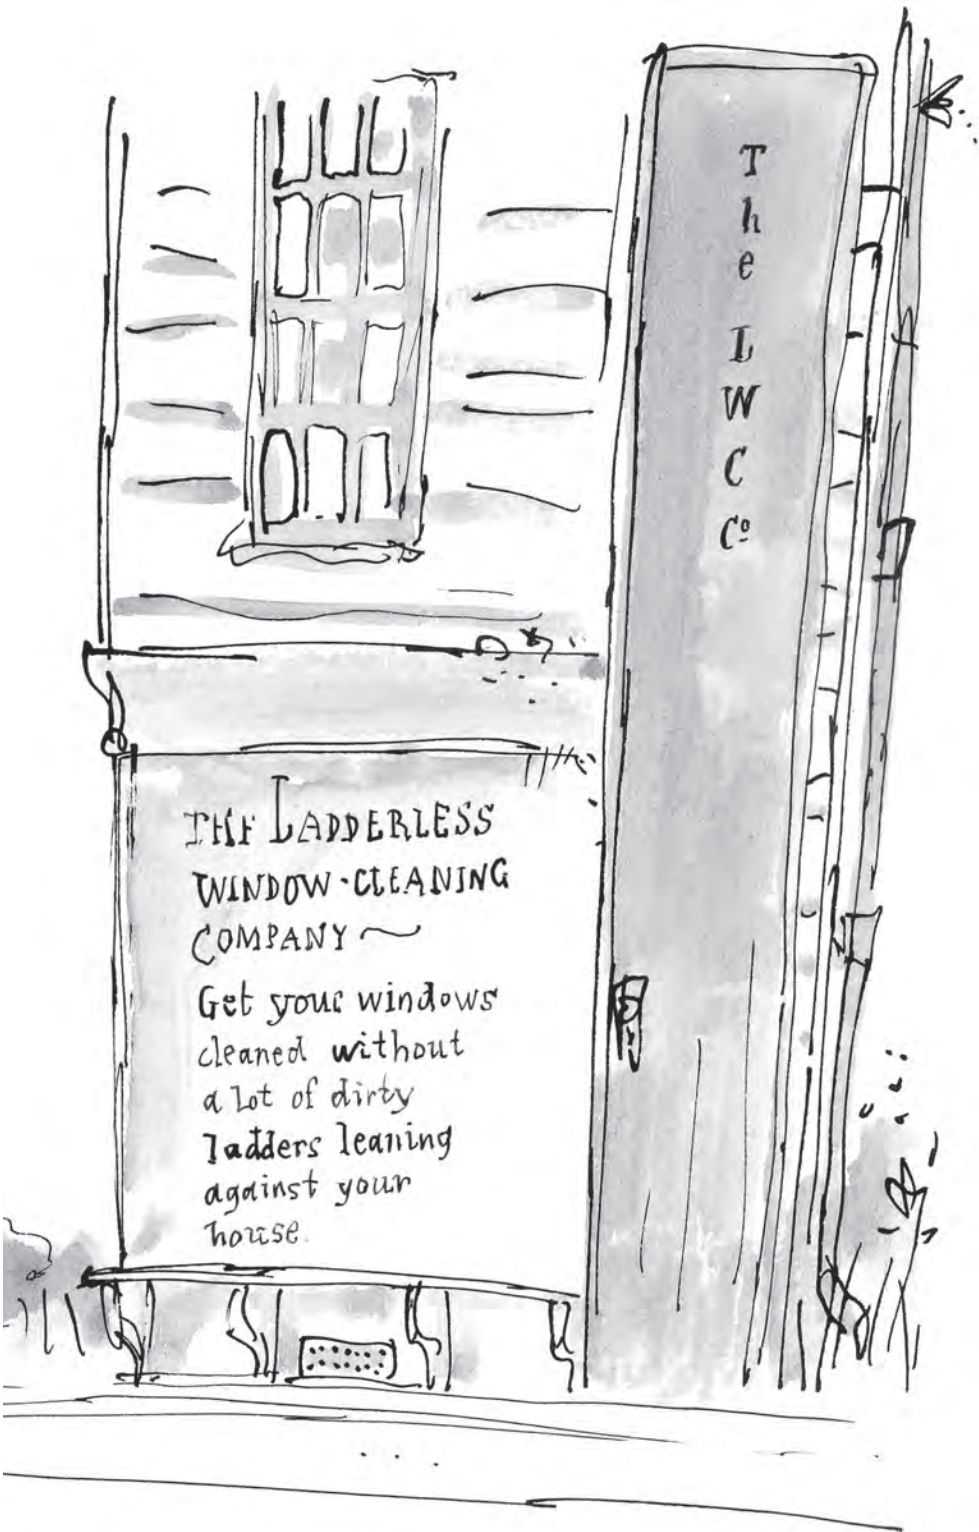 THE LADDERLESS
WINDOW-CLEANING
COMPANY
Get your windows
cleaned without
a lot of dirty
ladders leaning
against your
house.
The LWC Co